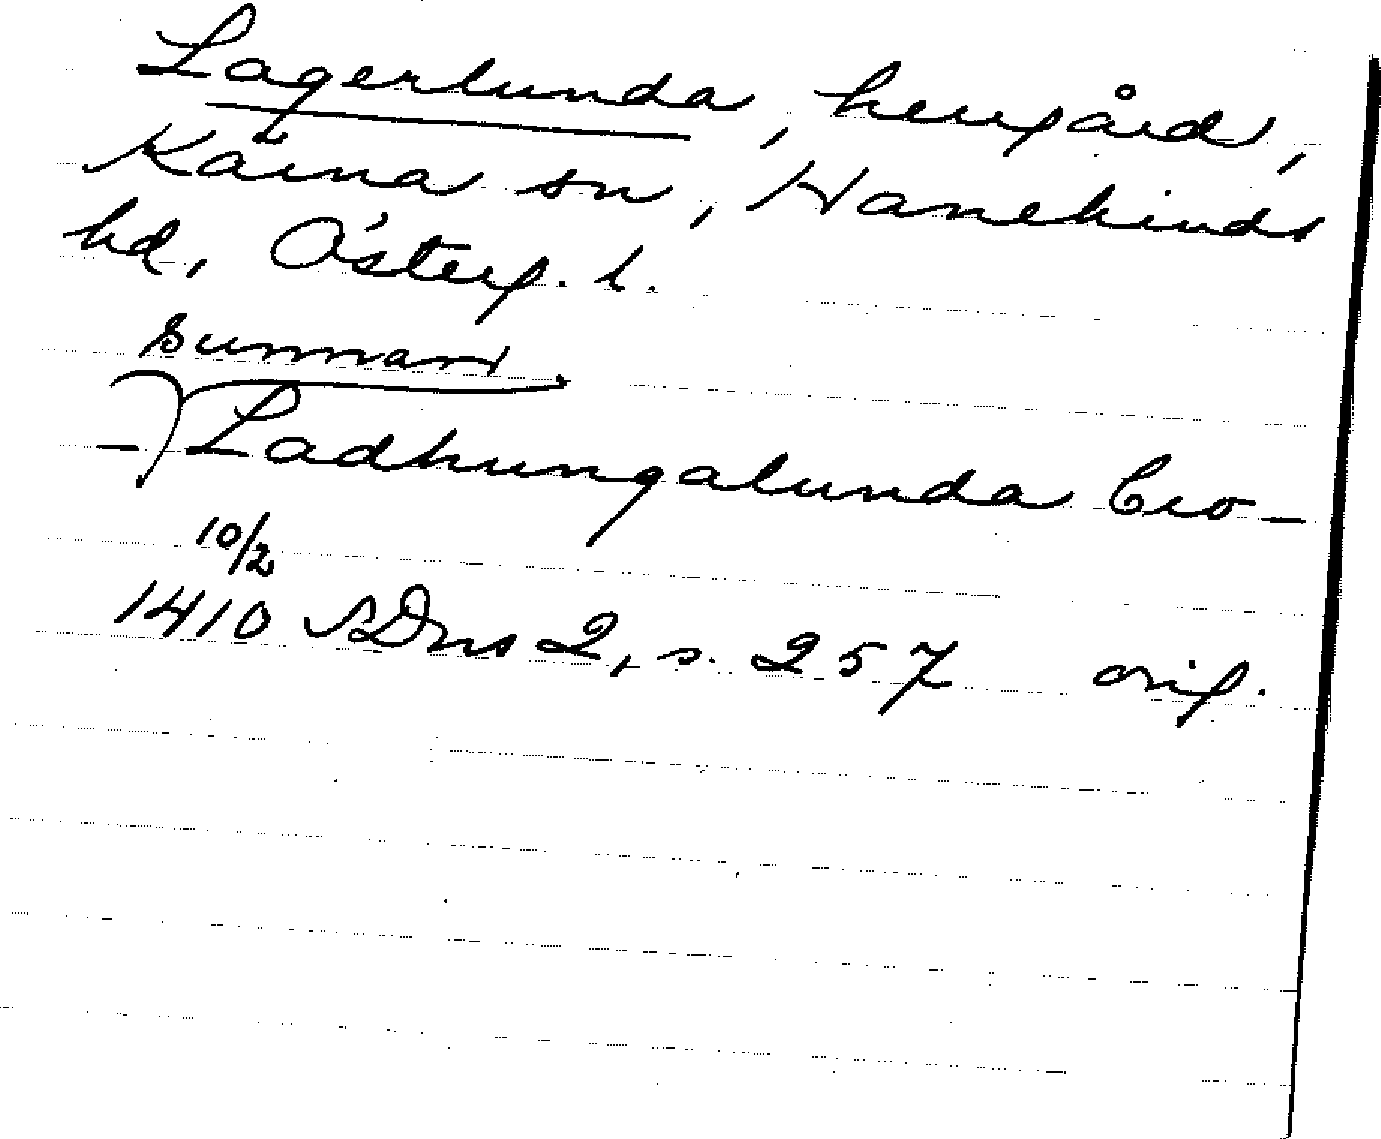 Lagerlunda, herrgård,
Kärna sn, Hanekinds
hd, Österg. l.
Ladhungalunda bro-
10/2
1410 SDns 2, s. 257 orig.